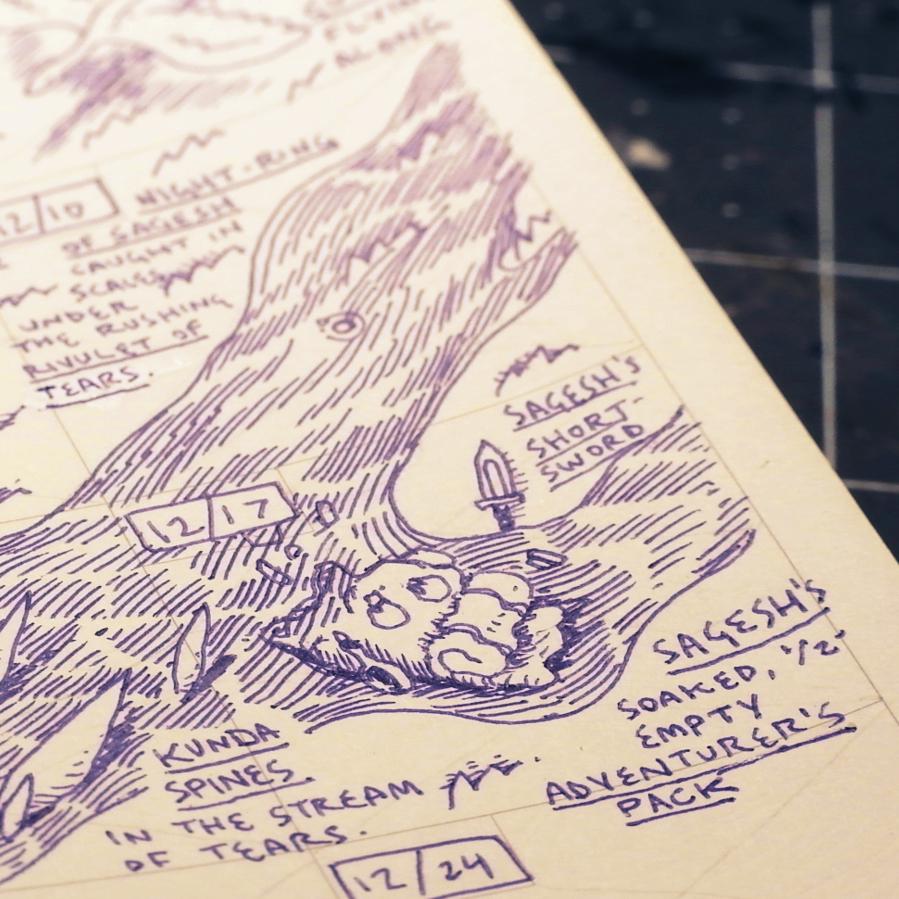 FLYIN
ALONG
12/10
NIGHT-RING
OF SAGESH
CAUGHT IN
SCALES
UNDER
THE RUSHING
RIVULET OF
TEARS.
SAGESH'S
SHORT-
SWORD
12/17
SAGESH'S
SOAKED, 1/2
EMPTY
ADVENTURER'S
PACK
KUNDA
SPINES.
IN THE STREAM
OF TEARS.
12/24